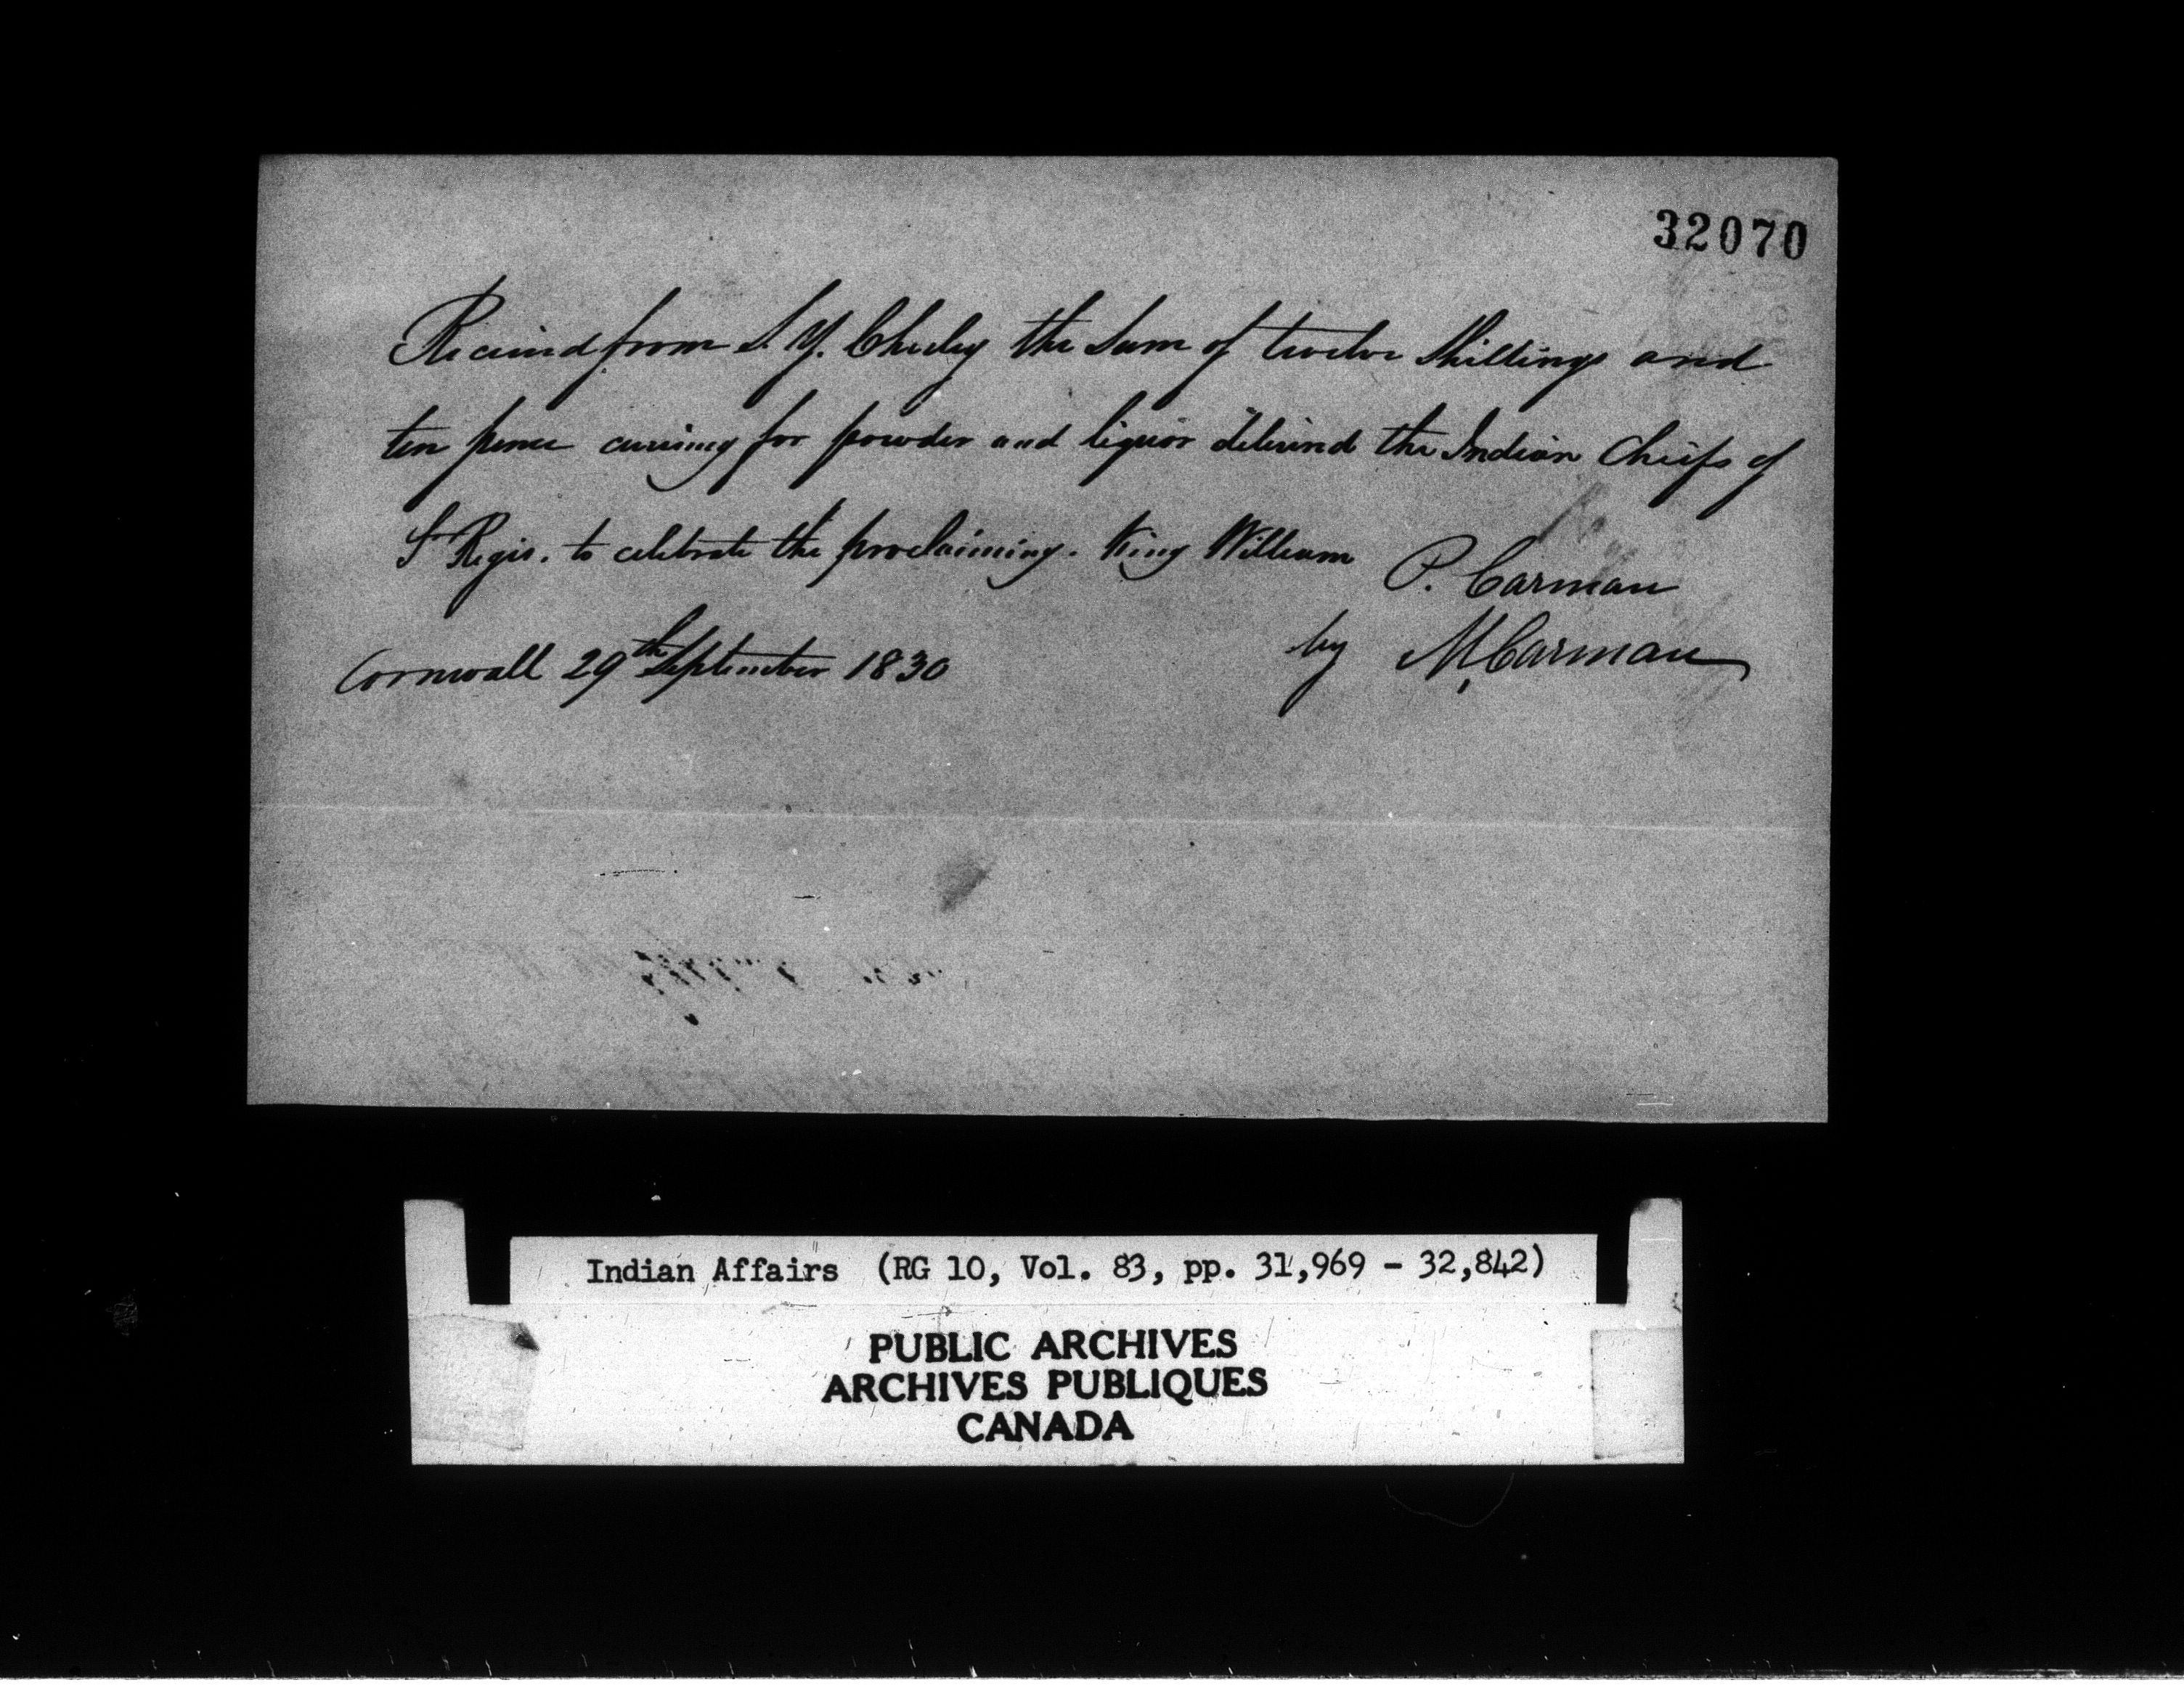 32070
Received from S. Y. Chesley the Sum of twelve Shillings and
ten pence currency for powder and liquor delivered the Indian Chiefs of
St Regis. to celebrate the proclaiming. King William
P. Carman
Cornwall 29th September 1830
by M, Carman
Indian Affairs (RG 10, Vol. 83, pp. 31,969 - 32,842)
PUBLIC ARCHIVES
ARCHIVES PUBLIQUES
CANADA